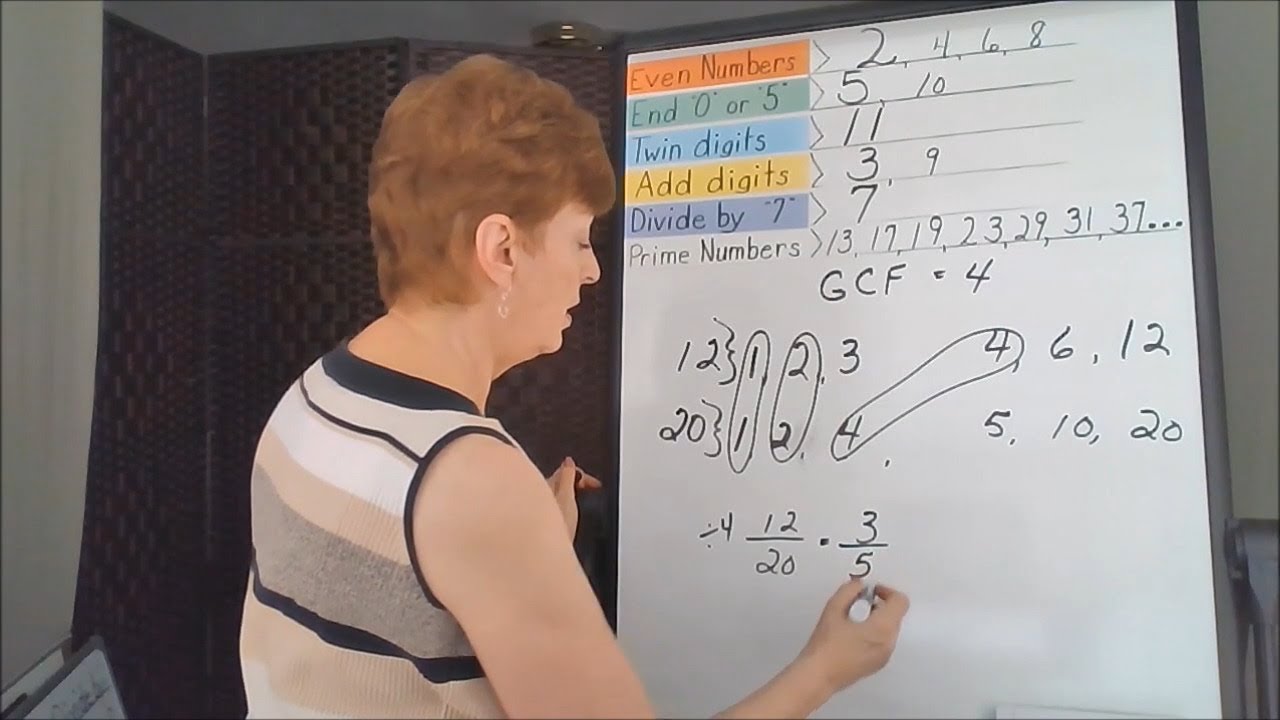 Even Numbers > 2, 4, 6, 8
End "0" or "5" > 5, 10
Twin digits > 11
Add digits > 3, 9
Divide by "7" > 7
Prime Numbers > 13, 17, 19, 23, 29, 31, 37...
GCF = 4
12} 1, 2, 3 4, 6, 12
20} 1, 2, 4, 5, 10, 20
÷4 12/20 = 3/5